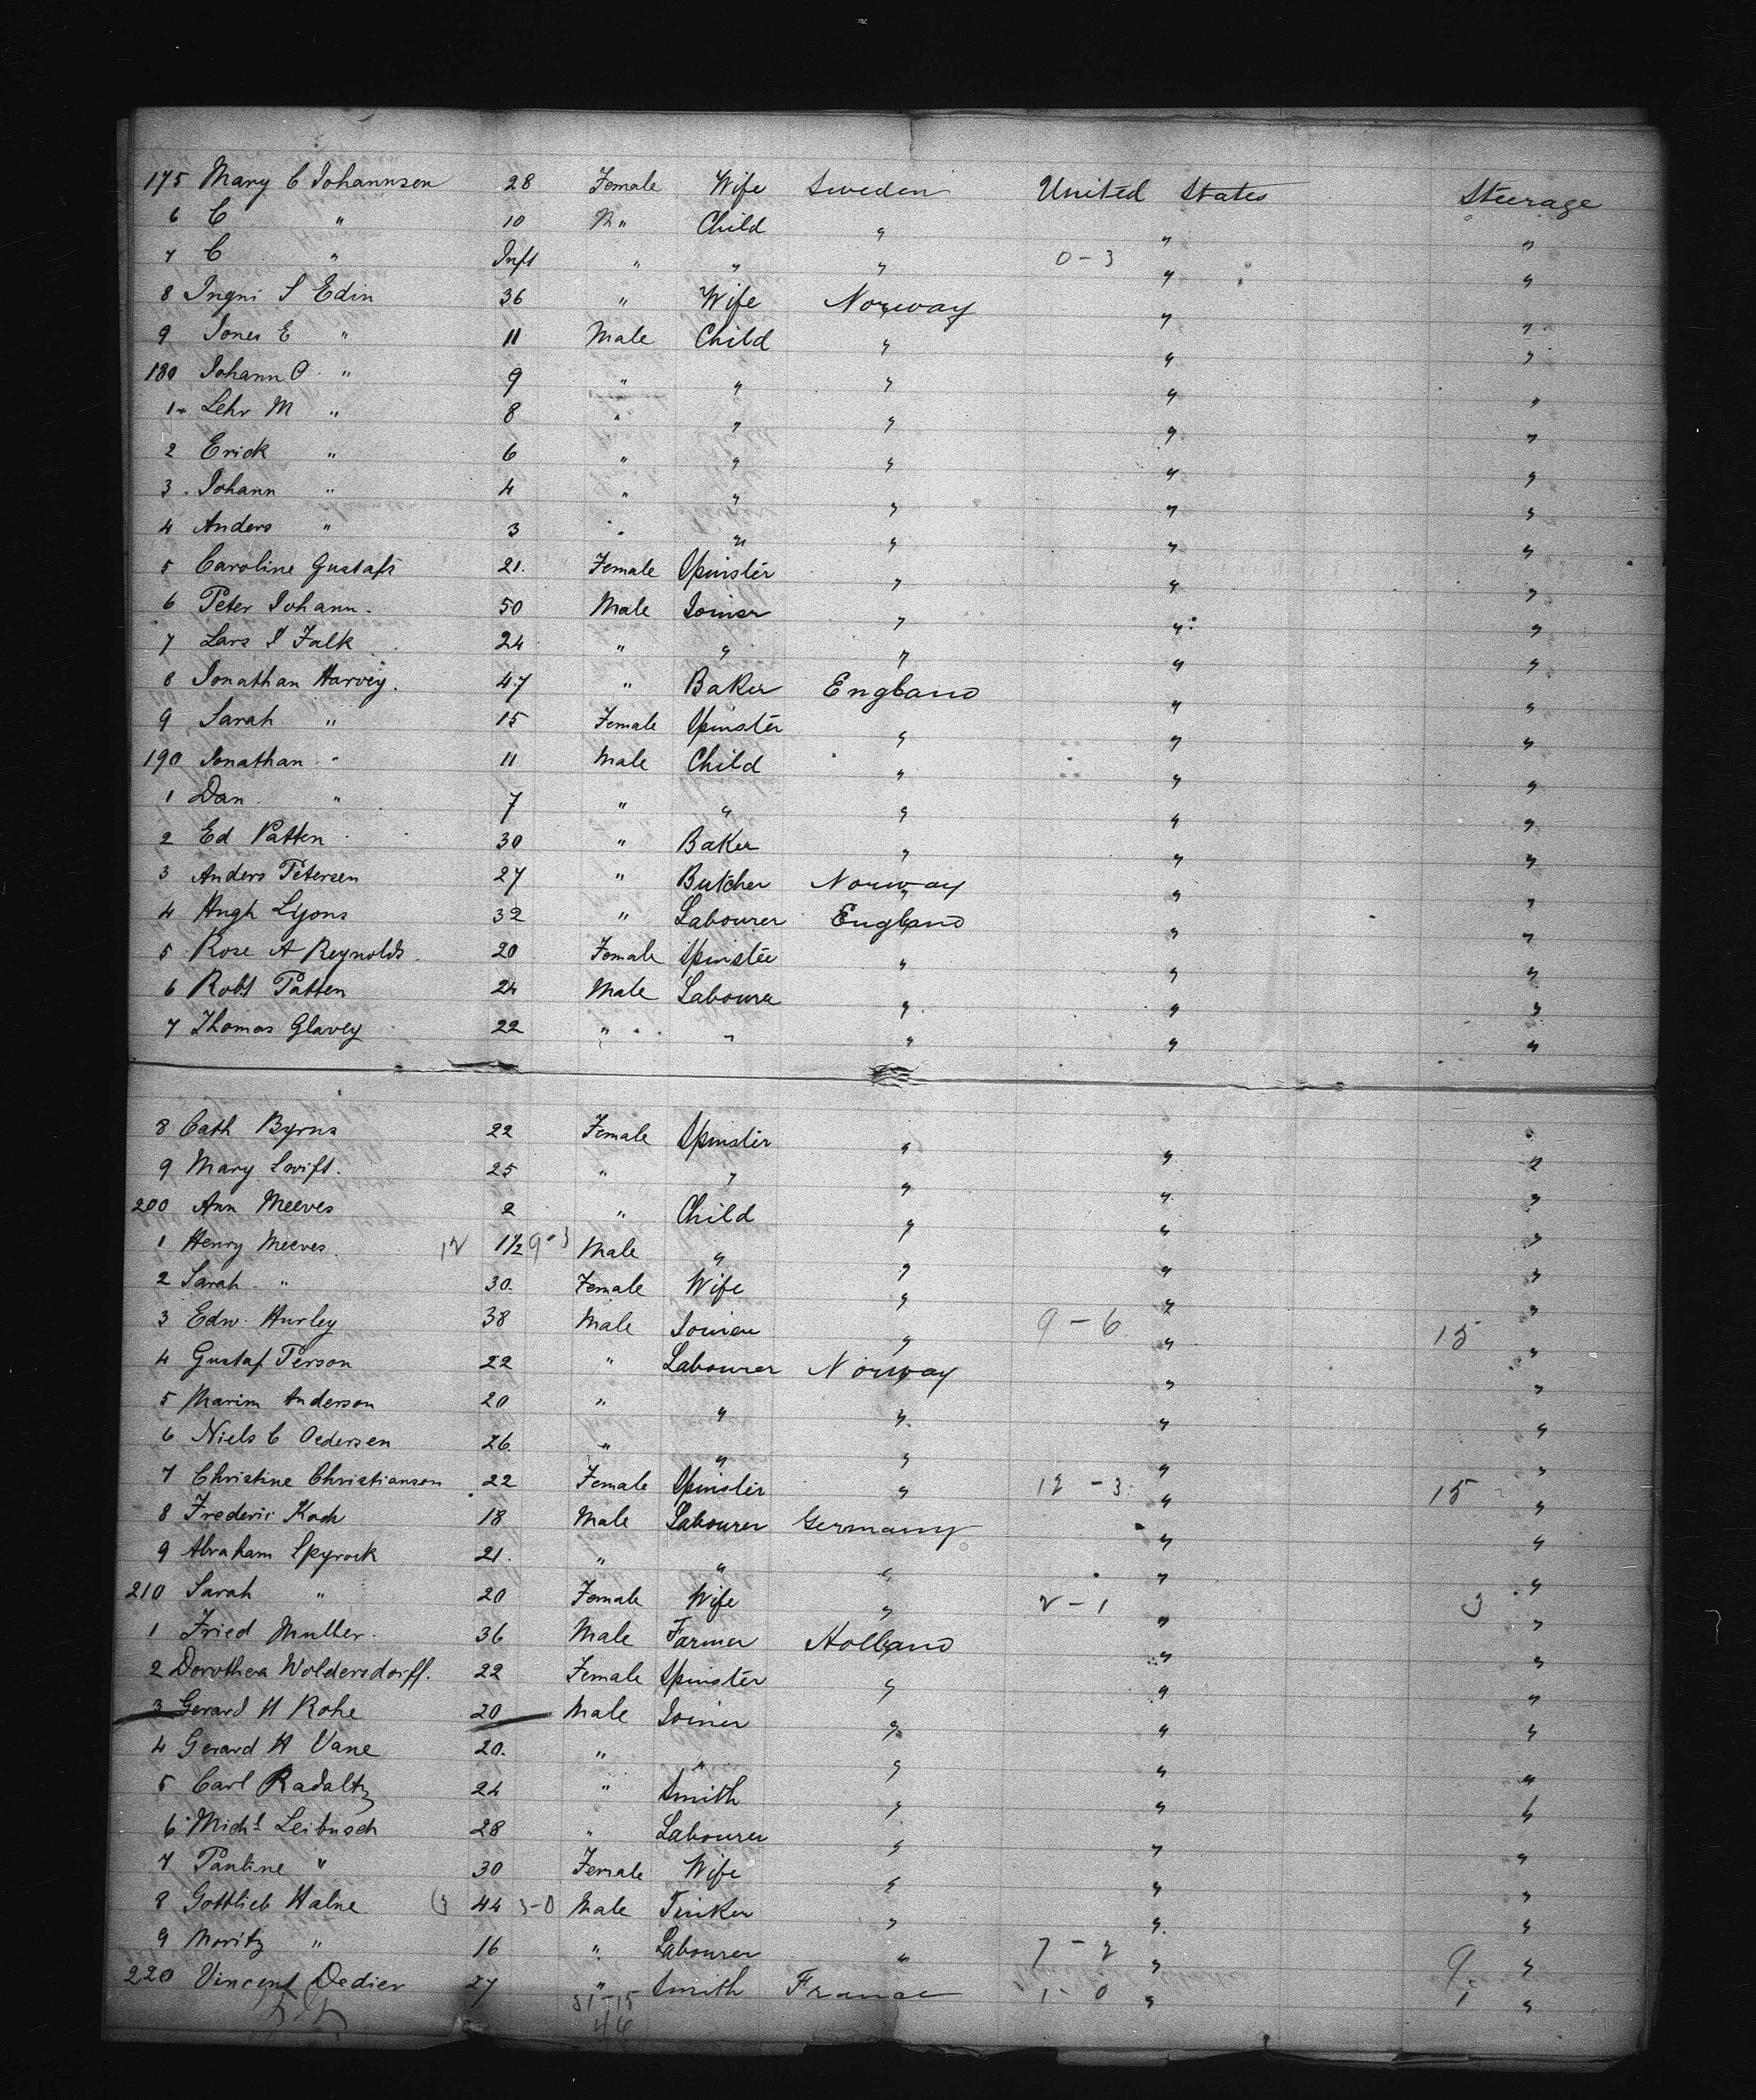 175 Mary C Johannsen 28 Female Wife Sweden United States Steerage
6 C " 10 M " Child " " "
7 C " Inft " " " 0-3 " "
8 Ingni S Edin 36 " Wife Norway " "
9 Jones E " 11 Male Child " " "
180 Johann O " 9 " " " " "
1 Lehr M " 8 " " " " "
2 Erick " 6 " " " " "
3 Johann " 4 " " " " "
4 Anders " 3 " " " " "
5 Caroline Gustafs 21 Female Spinster " " "
6 Peter Johann 50 Male Joiner " " "
7 Lars I Falk 24 " " " " "
8 Jonathan Harvey 47 " Baker England " "
9 Sarah " 15 Female Spinster " " "
190 Jonathan " 11 Male Child " " "
1 Dan " 7 " " " " "
2 Ed Patten 30 " Baker " " "
3 Anders Petersen 27 " Butcher Norway " "
4 Hugh Lyons 32 " Labourer England " "
5 Rose A Reynolds 20 Female Spinster " " "
6 Robt Patten 24 Male Labourer " " "
7 Thomas Glavey 22 " " " " "
8 Cath Byrns 22 Female Spinster " " "
9 Mary Swift 25 " " " " "
200 Ann Meeves 2 " Child " " "
1 Henry Meeves 12 1½ 9-3 Male " " " "
2 Sarah " 30 Female Wife " " "
3 Edw. Hurley 38 Male Joiner " 9-6 " 15 "
4 Gustaf Person 22 " Labourer Norway " "
5 Marim Anderson 20 " " " " "
6 Niels C Oedersen 26 " " " " "
7 Christine Christianson 22 Female Spinster " 12-3 " 15 "
8 Frederic Koch 18 Male Labourer Germany " "
9 Abraham Spyrock 21 " " " " "
210 Sarah " 20 Female Wife " 2-1 " 3 "
1 Fried Muller 36 Male Farmer Holland " "
2 Dorothea Woldersdorff. 22 Female Spinster " " "
3 Gerard H Rohe 20 Male Joiner " " "
4 Gerard H Vane 20 " " " " "
5 Carl Radaltz 24 " Smith " " "
6 Michl Leibusch 28 " Labourer " " "
7 Pauline " 30 Female Wife " " "
8 Gottlieb Halne 44 3-0 Male Tinker " " "
9 Moritz " 16 " Labourer " 7-2 " 9 "
220 Vincent Dedier 27 " Smith France 1-0 " 1 "
31-15
46